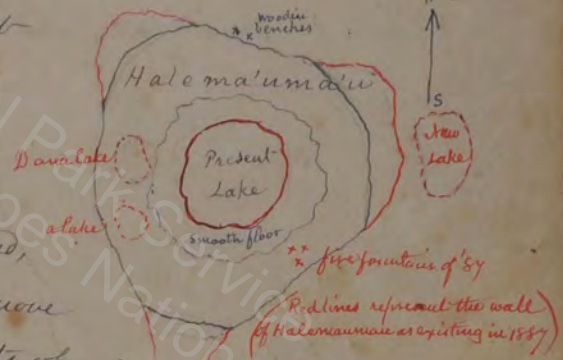 wooden
benches
Halema'uma'u
S
New
Lake
Dana lake
Present
Lake
a lake
smooth floor
fire fountains of '87
(Red lines represent the wall
of Halemaumau as existing in 1887)
l Park Servic
oes Natio